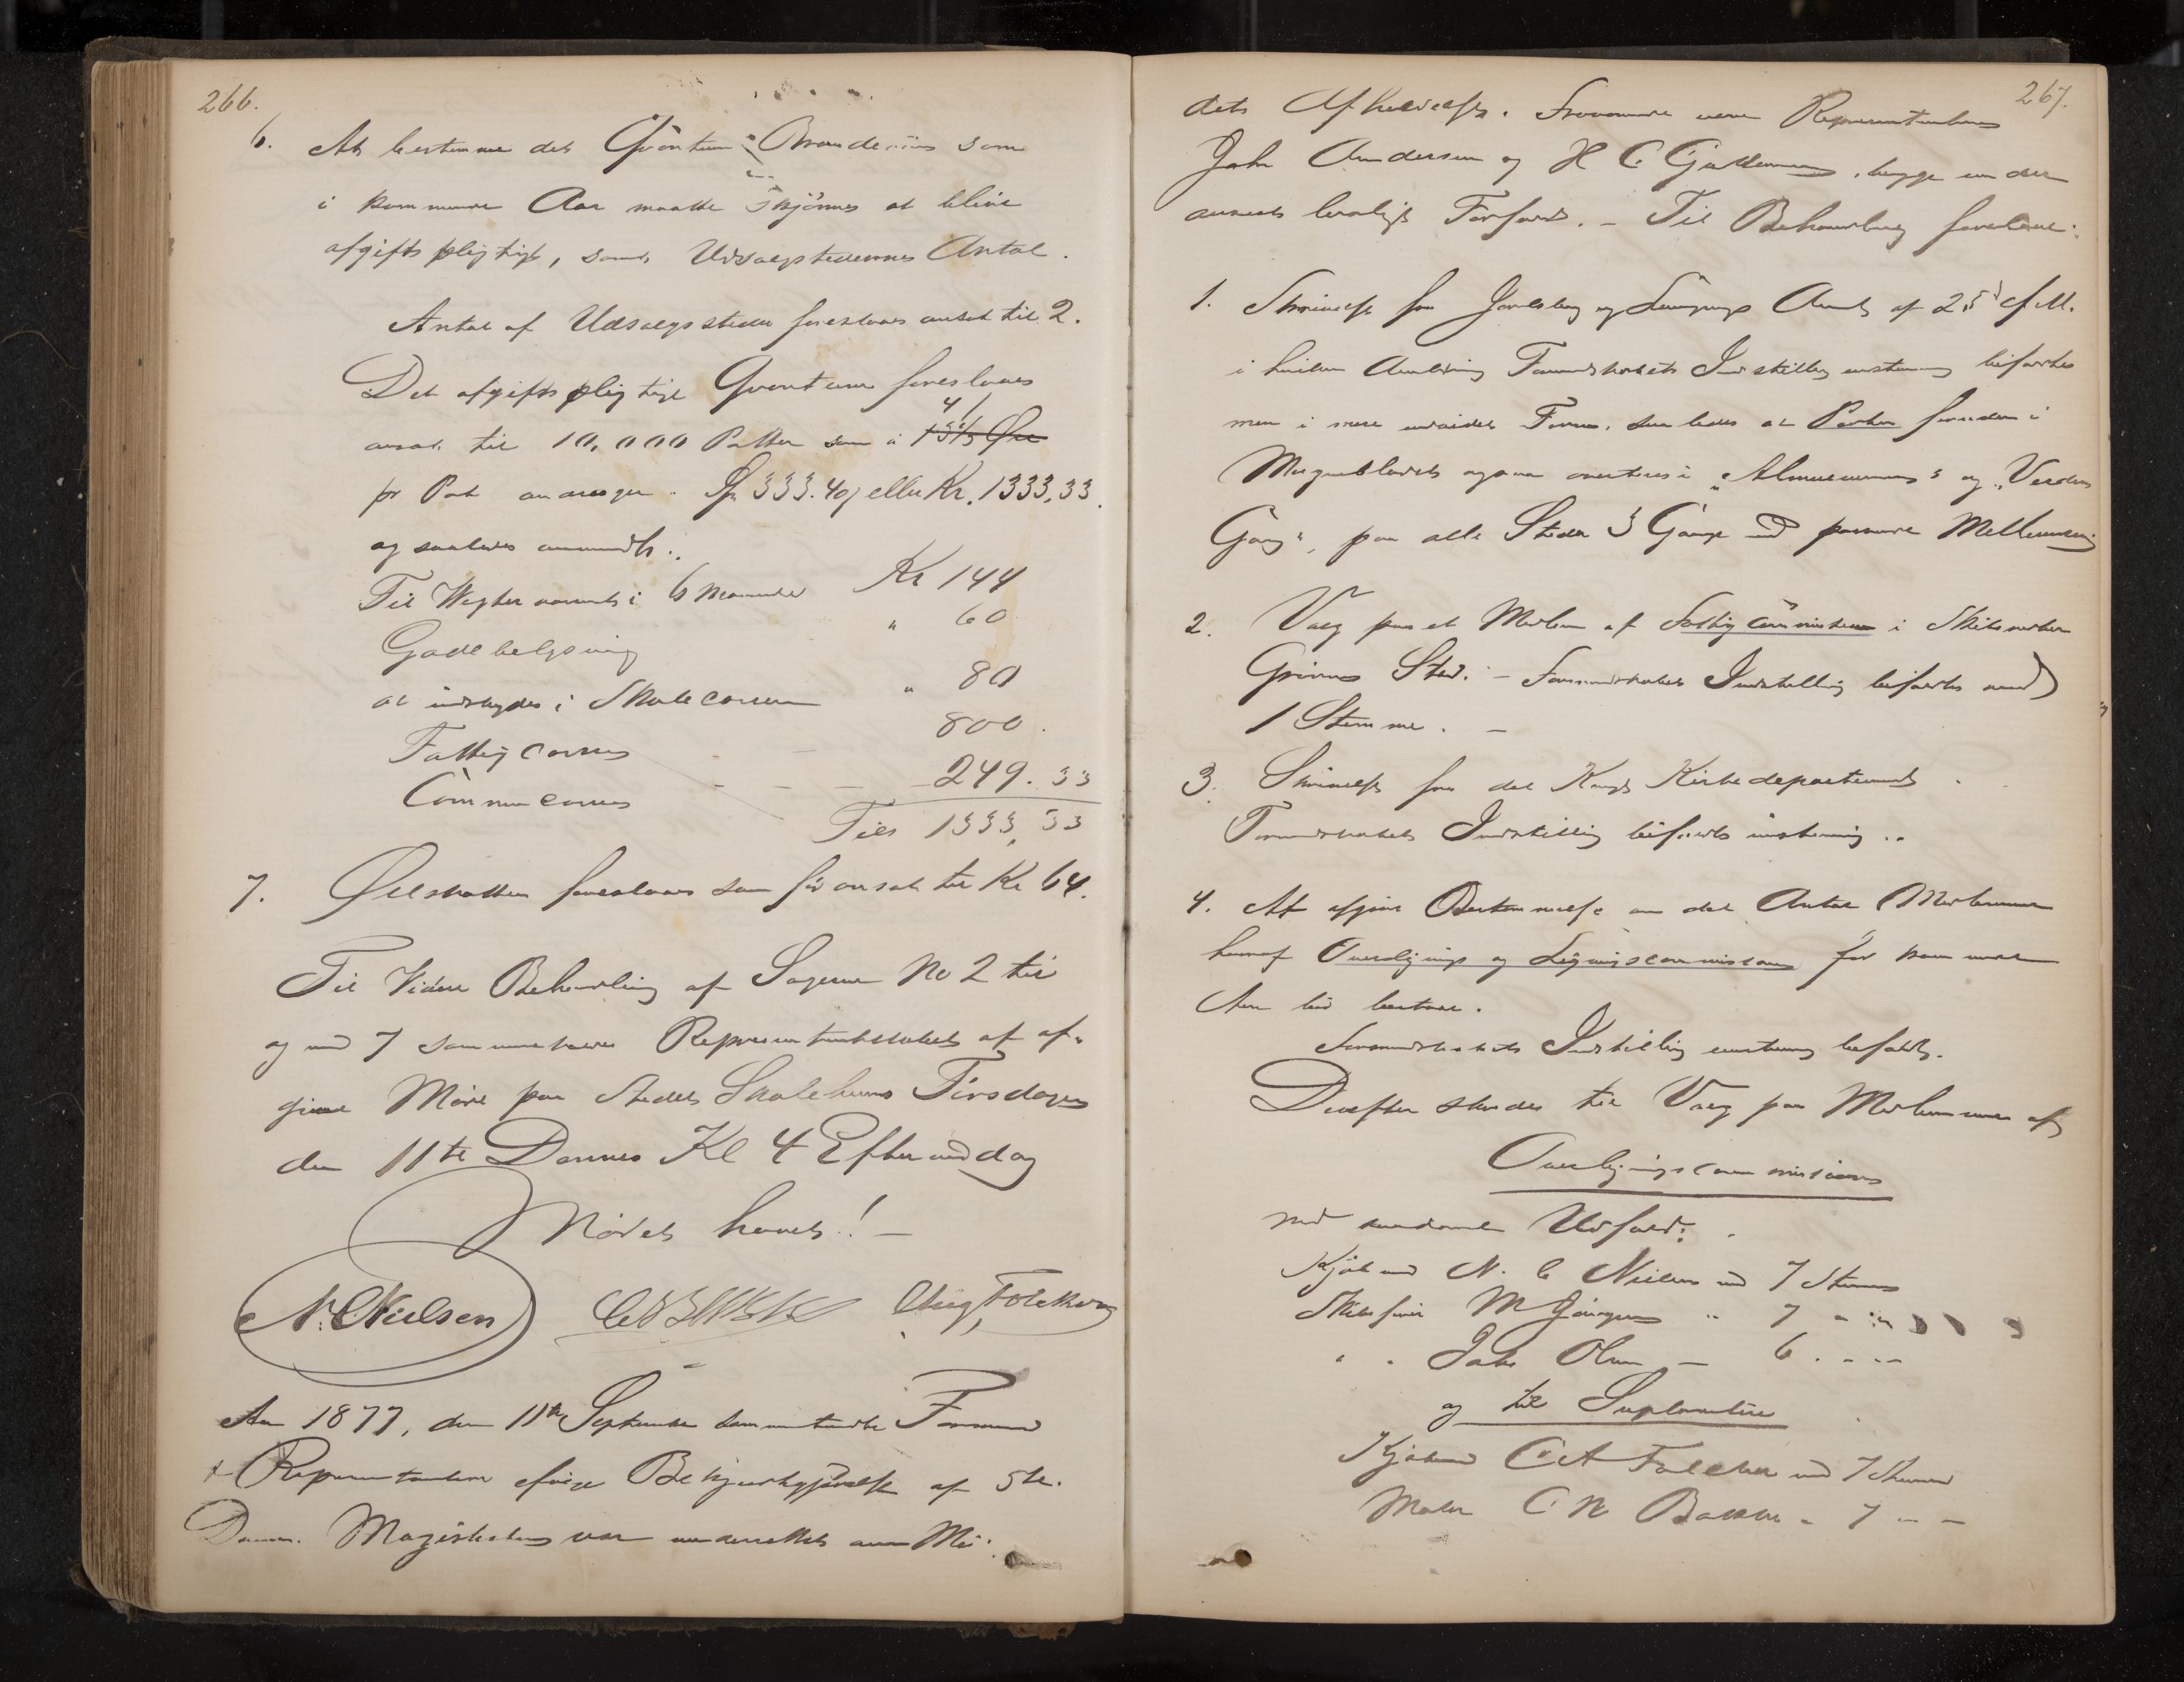 266.
6. At bestemme det Qvantum Brændeviin som
i kommende Aar maatte skjönnes at blive
afgiftspligtigt, samt Udsalgsstedernes Antal.
Antal af Udsalgssteder foreslaaes ansat til 2.
Det afgiftspligtige Qvantum foreslaaes
ansat til 10,000 Potter som à 13 1/3 Øre 4/
pr Pot andrager Sp 333.40/ eller Kr. 1333,33.
og saaledes anvendt:
Til Vægter i 6 Maaneder Kr 144
Gadebelysning " 60
at indskydes i Skolecassen " 80
Fattigcassen 800.
Communecassen - - - 249.33
Tils 1333,33
7. Ølskatten foreslaaes som för ansat til Kr 64.
Til Videre Behandling af Sagerne No 2 til
og med 7 sammentræder Repræsentantskabet at af-
give Möde paa Stedets Skolehuus Tirsdagen
den 11te Dennes Kl 4 Eftermiddag
Mödet hævet! -
N. C. Nielsen Chr Falckum
Aar 1877, den 11te September sammentraadte Formænd
& Repræsentantere ifølge Bekjendtgjørelse af 5te.
Dennes. Magistraten var underrettet om Mö-
267.
dets Afholdelse. Fraværende vare Repræsentanterne
John Andersen og H C Gullemann, begge under
anmeldt lovligt Forfald. - Til Behandling forelaae:
1. Skrivelse fra Jarlsberg og Laurvigs Amt af 25 d. M.
i hvilken Anledning Formandskabets Indstilling eenstemmig bifaldtes
men i mere udvidet Form, saaledes at Posten foruden i
Morgenbladet ogsaa averteres i "Almuevennen" og "Verdens
Gang", paa alle Steder 3 Gange med passende Mellemrum
2. Valg paa et Medlem af Fattigcommissionen i Skibsreder
Grönns Sted. - Formandskabets Indstilling bifaldtes mod
1 Stemme. -
3. Skrivelse fra det Kongl Kirkedepartement.
Formandskabets Indstilling bifaldtes enstemmig.
4. At afgive Bestemmelse om det Antal Medlemmer
hvoraf Overlignings og Ligningscommissionen for kommende
Aar bör bestaae.
Formandskabets Indstilling eenstemmig bifaldt.
Derefter skredes til Valg paa Medlemmer af
Overligningscommissionen
med saadant Udfald:
Kjöbmd N. C Nielsen med 7 Stemmer
Skibsfører M Jörgensen " 7 - "
" " Jakob Olsen - 6 . - - -
og til Suppleanter
Kjöbmd C A Falckum med 7 Stemmer
Maler C N Bakke - 7 - -